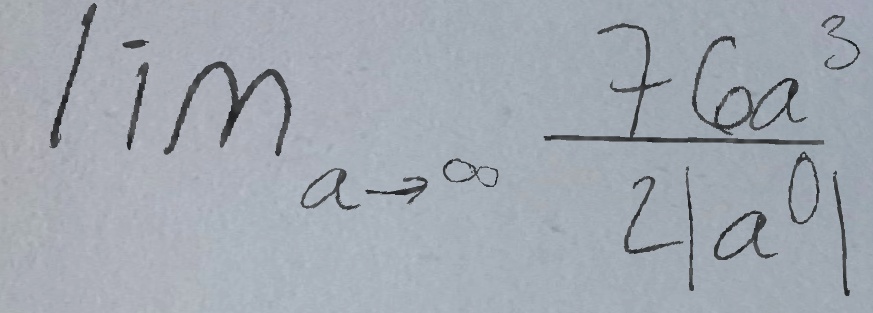 lim_{a→∞} \frac{76a^3}{2|a^0|}